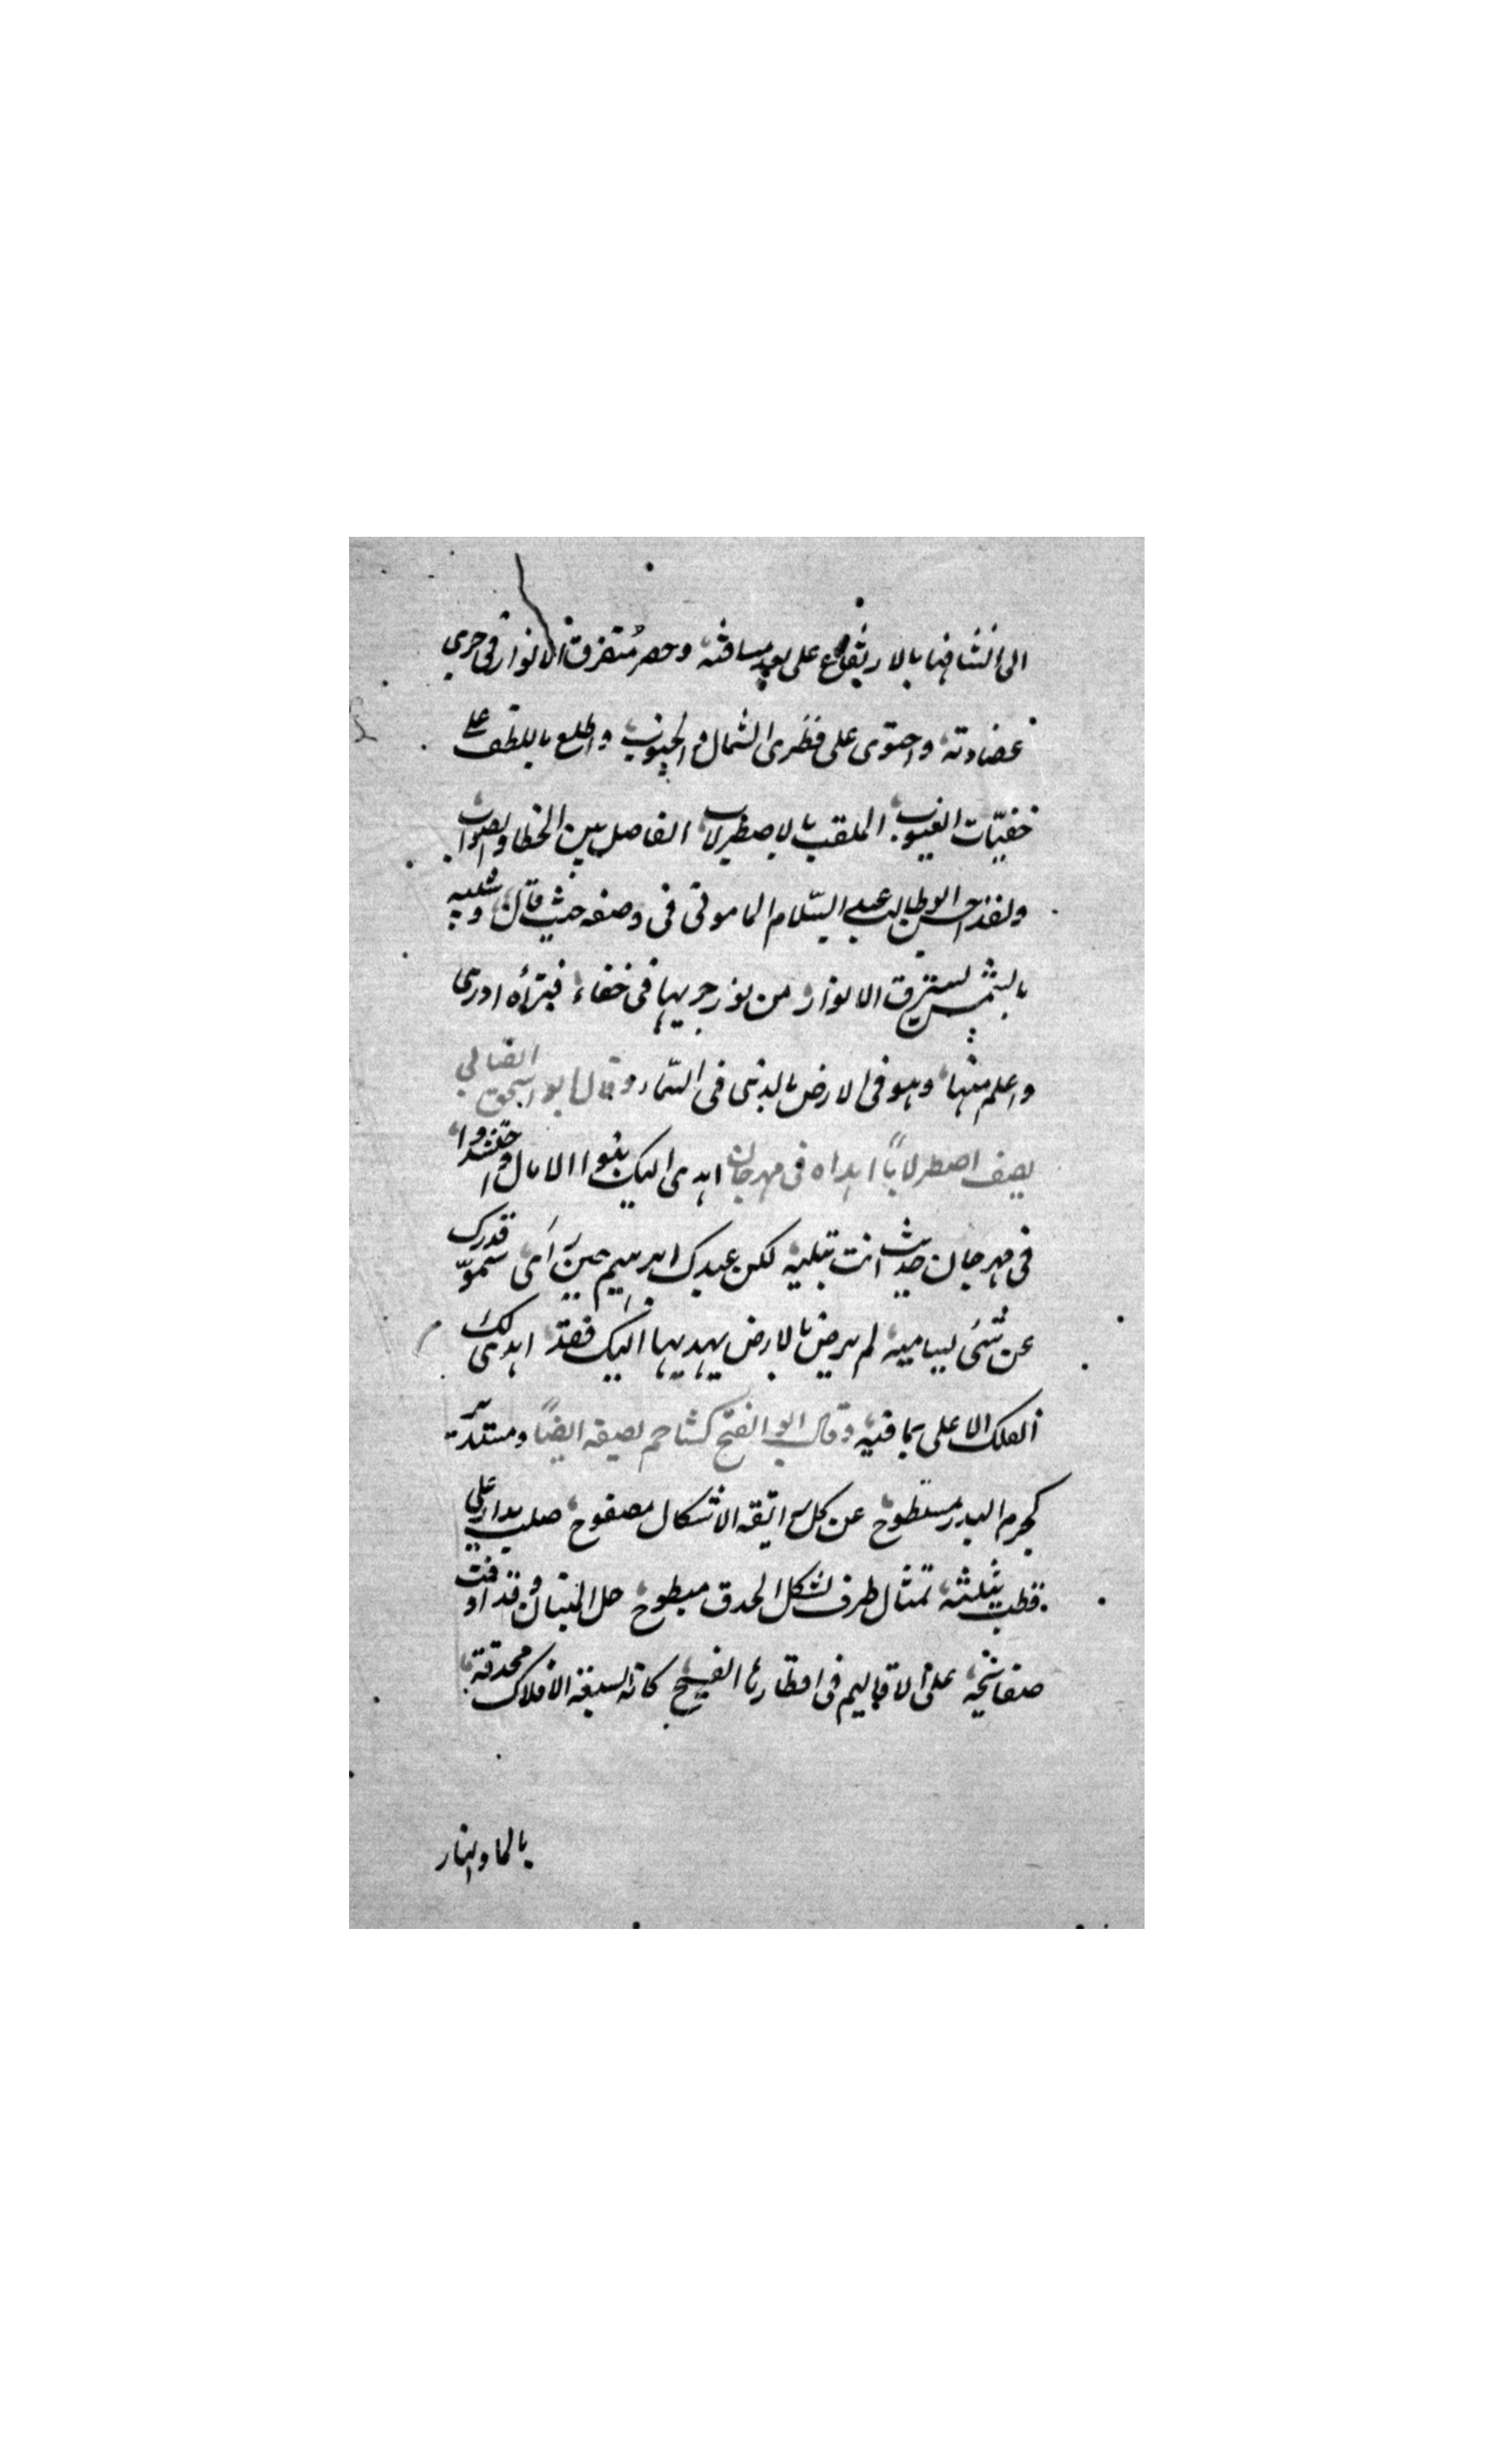 الى اكتشافها بالارتفاع على بعد مسافته وحصر متفرق الانوار فى حرى
عضادته واحتوى على قطرى الشمال والجنوب واطلع باللطف على
خفيّات الغيوب الملقب بالاصطرلاب الفاصل بين الخطا والصواب
ولقد احسن ابو طالب عبد السّلام المامونى فى وصفه حيث قال وشبيه
بالشمس يسترق الانوار من نور جريها فى خفاء فتراه ادرى
واعلم منها وهو فى الارض بالذى فى السّماء وقال ابو اسحق الصابي
يصف اصطرلاباً اهداه فى مهرجان اهدى اليك بنوا الامال واحتشدوا
فى مهرجان حديث انت تبليه لكن عبدك ابرهيم حين رَاَى سموّ قدرك
عن شئ يساميه لم يرض بالارض يهديها اليك فقد اهدى لك
الفلك الاعلى بما فيه وقال ابو الفتح كشاجم يصفه ايضًا ومستدير
كجرم البدر مسطوح عن كل رائقة الاشكال مصفوح صلب يدار على
قطب يثبته تمثال طرف بشكل الحدق مبطوح مل البنان وقد اوفت
صفائحه على الاقاليم فى اقطارها الفيح كانه السبعة الافلاك محدقة
بالما والنار